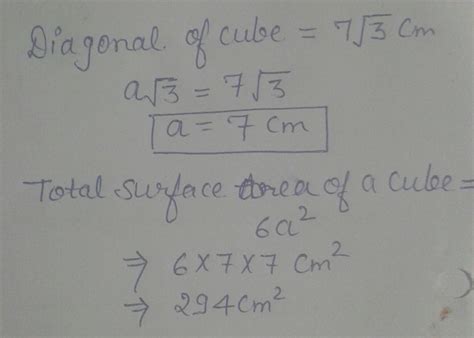 Diagonal of cube = 7√3 cm
a√3 = 7√3
a = 7 cm
Total surface area of a cube =
6a²
⇒ 6×7×7 cm²
⇒ 294 cm²